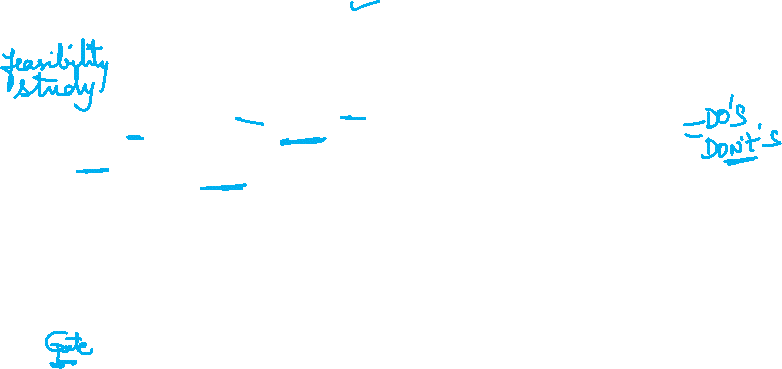 feasibility
study
- DO'S
- DON'T'S
Gate